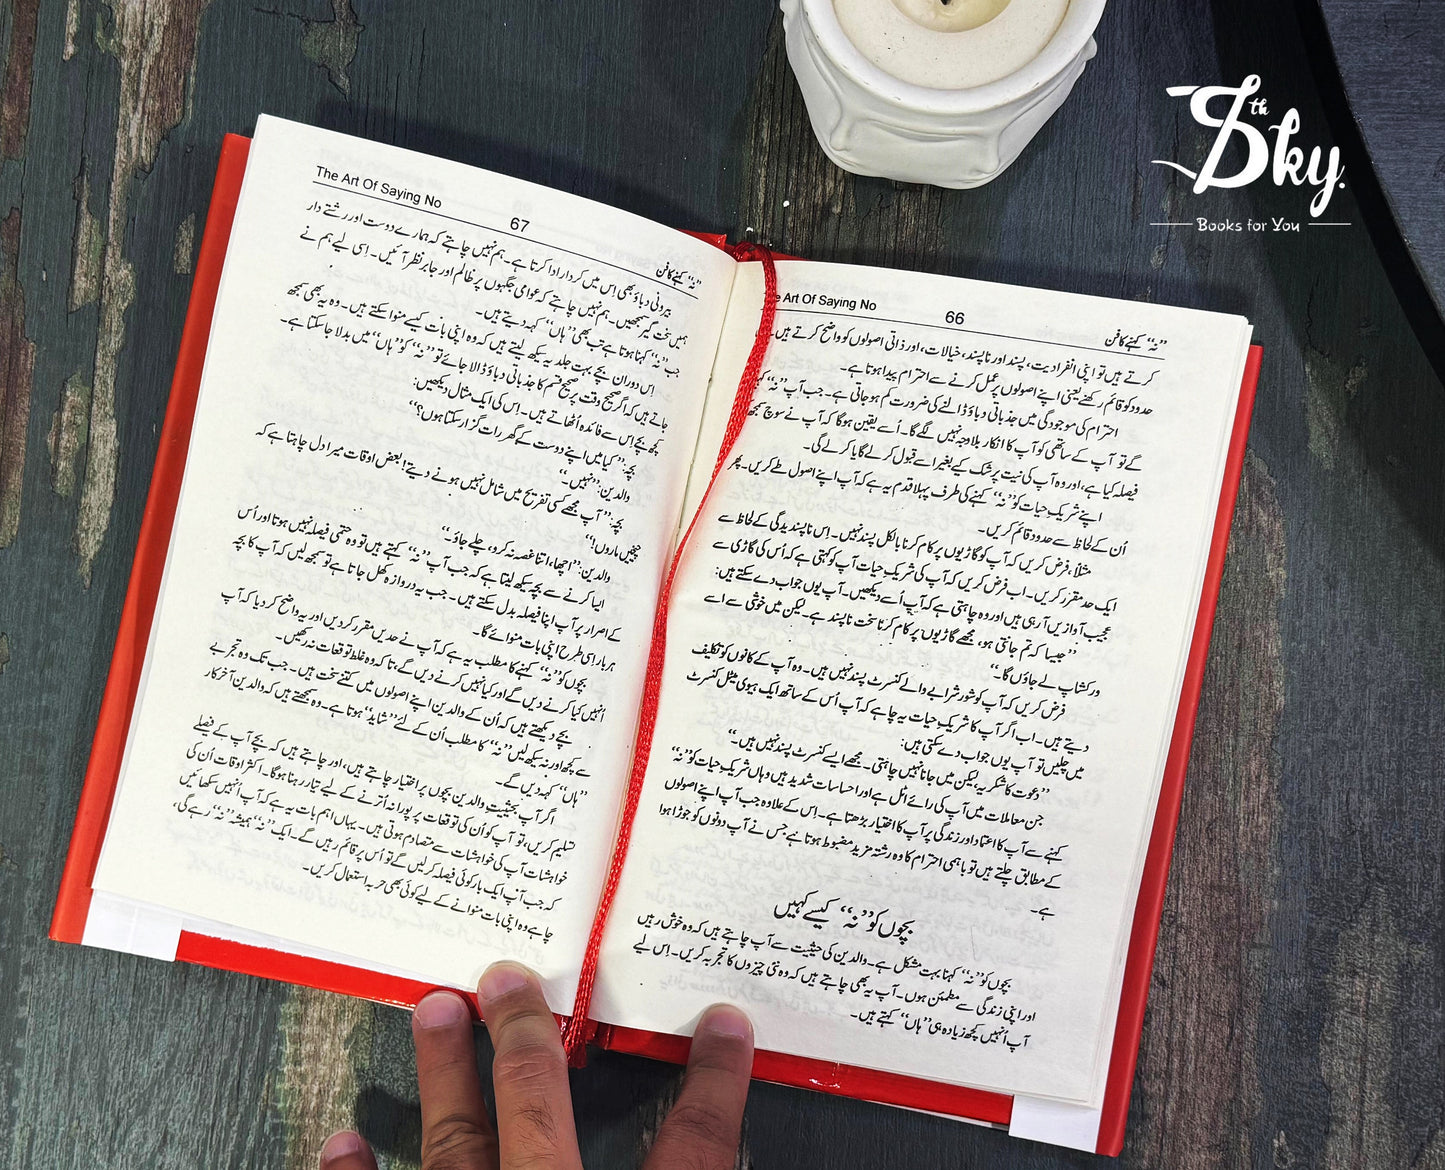 The Art Of Saying No
66
”نہ“ کہنے کا فن
کرتے ہیں تو اپنی انفرادیت، پسند اور ناپسند، خیالات، اور ذاتی اصولوں کو واضح کرتے ہیں۔
حدود کو قائم رکھنے یعنی اپنے اصولوں پر عمل کرنے سے احترام پیدا ہوتا ہے۔
احترام کی موجودگی میں جذباتی دباؤ ڈالنے کی ضرورت کم ہو جاتی ہے۔ جب آپ ”نہ“
گے تو آپ کے ساتھی کو آپ کا انکار بلاوجہ نہیں لگے گا۔ اُسے یقین ہو گا کہ آپ نے سوچ سمجھ
فیصلہ کیا ہے، اور وہ آپ کی نیت پر شک کیے بغیر اسے قبول کر لے گا یا کر لے گی۔
اپنے شریکِ حیات کو ”نہ“ کہنے کی طرف پہلا قدم یہ ہے کہ آپ اپنے اصول طے کریں۔ پھر
اُن کے لحاظ سے حدود قائم کریں۔
مثلاً، فرض کریں کہ آپ کو گاڑیوں پر کام کرنا بالکل پسند نہیں۔ اِس ناپسندیدگی کے لحاظ سے
ایک حد مقرر کریں۔ اب فرض کریں کہ آپ کی شریکِ حیات آپ کو کہتی ہے کہ اُس کی گاڑی سے
عجیب آوازیں آ رہی ہیں اور وہ چاہتی ہے کہ آپ اُسے دیکھیں۔ آپ یوں جواب دے سکتے ہیں:
”جیسا کہ تم جانتی ہو، مجھے گاڑیوں پر کام کرنا سخت ناپسند ہے۔ لیکن میں خوشی سے اسے
ورکشاپ لے جاؤں گا۔“
فرض کریں کہ آپ کو شور شرابے والے کنسرٹ پسند نہیں ہیں۔ وہ آپ کے کانوں کو تکلیف
دیتے ہیں۔ اب اگر آپ کا شریکِ حیات یہ چاہے کہ آپ اُس کے ساتھ ایک ہیوی میٹل کنسرٹ
میں چلیں تو آپ یوں جواب دے سکتی ہیں:
”دعوت کا شکریہ، لیکن میں جانا نہیں چاہتی۔ مجھے ایسے کنسرٹ پسند نہیں ہیں۔“
جن معاملات میں آپ کی رائے اٹل ہے اور احساسات شدید ہیں وہاں شریکِ حیات کو ”نہ“
کہنے سے آپ کا اعتماد اور زندگی پر آپ کا اختیار بڑھتا ہے۔ اِس کے علاوہ جب آپ اپنے اصولوں
کے مطابق چلتے ہیں تو باہمی احترام کا وہ رشتہ مزید مضبوط ہوتا ہے جس نے آپ دونوں کو جوڑا ہوا
ہے۔
بچوں کو ”نہ“ کیسے کہیں
بچوں کو ”نہ“ کہنا بہت مشکل ہے۔ والدین کی حیثیت سے آپ چاہتے ہیں کہ وہ خوش رہیں
اور اپنی زندگی سے مطمئن ہوں۔ آپ یہ بھی چاہتے ہیں کہ وہ نئی چیزوں کا تجربہ کریں۔ اِس لیے
آپ اُنہیں کچھ زیادہ ہی ”ہاں“ کہتے ہیں۔
The Art Of Saying No
67
”نہ“ کہنے کا فن
بیرونی دباؤ بھی اِس میں کردار ادا کرتا ہے۔ ہم نہیں چاہتے کہ ہمارے دوست اور رشتے دار
ہمیں سخت گیر سمجھیں۔ ہم نہیں چاہتے کہ عوامی جگہوں پر ظالم اور جابر نظر آئیں۔ اِسی لیے ہم نے
جب ”نہ“ کہنا ہوتا ہے تب بھی ”ہاں“ کہہ دیتے ہیں۔
اِس دوران بچے بہت جلد یہ سیکھ لیتے ہیں کہ وہ اپنی بات کیسے منوا سکتے ہیں۔ وہ یہ بھی سمجھ
جاتے ہیں کہ اگر صحیح وقت پر صحیح قسم کا جذباتی دباؤ ڈالا جائے تو ”نہ“ کو ”ہاں“ میں بدلا جا سکتا ہے۔
کچھ بچے اِس سے فائدہ اُٹھاتے ہیں۔ اِس کی ایک مثال دیکھیں:
بچہ: ”کیا میں اپنے دوست کے گھر رات گزار سکتا ہوں؟“
والدین: ”نہیں۔“
بچہ: ”آپ مجھے کسی تفریح میں شامل نہیں ہونے دیتے! بعض اوقات میرا دل چاہتا ہے کہ
چیخیں ماروں!“
والدین: ”اچھا، اتنا غصہ نہ کرو، چلے جاؤ۔“
ایسا کرنے سے بچہ سیکھ لیتا ہے کہ جب آپ ”نہ“ کہتے ہیں تو وہ حتمی فیصلہ نہیں ہوتا اور اُس
کے اصرار پر آپ اپنا فیصلہ بدل سکتے ہیں۔ جب یہ دروازہ کھل جاتا ہے تو سمجھ لیں کہ آپ کا بچہ
ہر بار اِسی طرح اپنی بات منوائے گا۔
بچوں کو ”نہ“ کہنے کا مطلب یہ ہے کہ آپ نے حدیں مقرر کر دیں اور یہ واضح کر دیا کہ آپ
اُنہیں کیا کرنے دیں گے اور کیا نہیں کرنے دیں گے، تاکہ وہ غلط توقعات نہ رکھیں۔
بچے دیکھتے ہیں کہ اُن کے والدین اپنے اصولوں میں کتنے سخت ہیں۔ جب تک وہ تجربے
سے کچھ اور نہ سیکھ لیں ”نہ“ کا مطلب اُن کے لیے ”شاید“ ہوتا ہے۔ وہ سمجھتے ہیں کہ والدین آخر کار
”ہاں“ کہہ دیں گے۔
اگر آپ بحیثیتِ والدین بچوں پر اختیار چاہتے ہیں، اور چاہتے ہیں کہ بچے آپ کے فیصلے
تسلیم کریں، تو آپ کو اُن کی توقعات پر پورا نہ اُترنے کے لیے تیار رہنا ہو گا۔ اکثر اوقات اُن کی
خواہشات آپ کی خواہشات سے متصادم ہوتی ہیں۔ یہاں اہم بات یہ ہے کہ آپ اُنہیں سکھائیں
کہ جب آپ ایک بار کوئی فیصلہ کر لیں گے تو اُس پر قائم رہیں گے۔ ایک ”نہ“ ہمیشہ ”نہ“ رہے گی،
چاہے وہ اپنی بات منوانے کے لیے کوئی بھی حربہ استعمال کریں۔
Sky.
th
Books for You